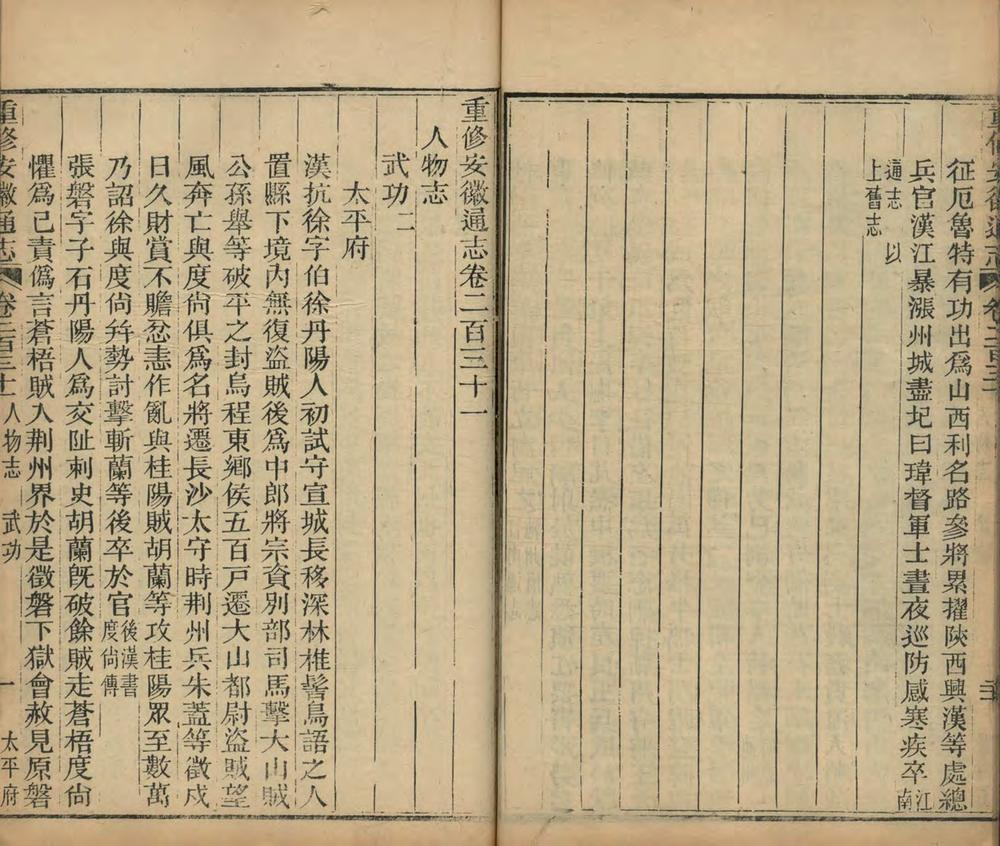 征厄魯特有功出爲山西利名路參將累擢陝西興漢等處總
兵官漢江暴漲州城盡圮曰瑋督軍士晝夜巡防感寒疾卒江南
通志 以
上舊志
重修安徽通志卷二百三十一
人物志
武功二
太平府
漢抗徐字伯徐丹陽人初試守宣城長移深林椎髻鳥語之人
置縣下境內無復盜賊後爲中郎將宗資別部司馬擊大山賊
公孫舉等破平之封烏程東鄉侯五百戸遷大山都尉盜賊望
風奔亡與度尙俱爲名將遷長沙太守時荆州兵朱蓋等徵戍
日久財賞不贍忿恚作亂與桂陽賊胡蘭等攻桂陽眾至數萬
乃詔徐與度尙幷勢討擊斬蘭等後卒於官後漢書度尙傳
張磐字子石丹陽人爲交阯刺史胡蘭旣破餘賊走蒼梧度尙
懼爲己責僞言蒼梧賊入荆州界於是徵磐下獄會赦見原磐
重修安徽通志 卷二百三十一 人物志 武功 一 太平府